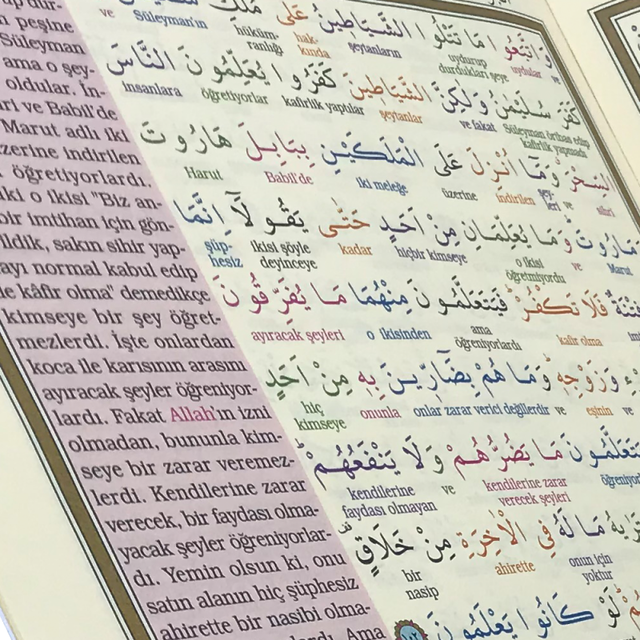 peşine
Süleyman
ama o şey-
oldular. İn-
ri ve Babil'de
Marut adlı iki
zerine indirilen
öğretiyorlardı.
ki o ikisi "Biz an-
bir imtihan için gön-
ildik, sakın sihir yap-
ayı normal kabul edip
le kâfir olma" demedikçe
kimseye bir şey öğret-
mezlerdi. İşte onlardan
koca ile karısının arasını
ayıracak şeyler öğreniyor-
lardı. Fakat Allah'ın izni
olmadan, bununla kim-
seye bir zarar veremez-
lerdi. Kendilerine zarar
verecek, bir faydası olma-
yacak şeyler öğreniyorlar-
dı. Yemin olsun ki, onu
satın alanın hiç şüphesiz
ahirette bir nasibi olma-
وَاتَّبَعُوا مَا تَتْلُوا الشَّيَاطِينُ عَلٰى مُلْكِ
ve uydular uydurup durdukları şeye şeytanların hakkında hükümranlığı Süleyman'ın ve
كَفَرَ سُلَيْمٰنُ وَلٰكِنَّ الشَّيَاطِينَ كَفَرُوا يُعَلِّمُونَ النَّاسَ
Süleyman ve fakat şeytanlar kafirlik yaptılar öğretiyorlar insanlara
السِّحْرَ وَمَا اُنْزِلَ عَلَى الْمَلَكَيْنِ بِبَابِلَ هَارُوتَ
sihri ve şeyleri indirilen üzerine iki meleğe Babil'de Harut
مَارُوتَ وَمَا يُعَلِّمَانِ مِنْ اَحَدٍ حَتّٰى يَقُولَا اِنَّمَا
Marut ve o ikisi öğretmiyordu hiçbir kimseye kadar ikisi şöyle deyinceye şüphesiz
فِتْنَةٌ فَلَا تَكْفُرْ فَيَتَعَلَّمُونَ مِنْهُمَا مَا يُفَرِّقُونَ
kafir olma ama öğreniyorlardı o ikisinden ayıracak şeyleri
وَزَوْجِهِ وَمَا هُمْ بِضَارِّينَ بِهِ مِنْ اَحَدٍ
ve eşinin ve onlar zarar verici değillerdir onunla hiç kimseye
يَتَعَلَّمُونَ مَا يَضُرُّهُمْ وَلَا يَنْفَعُهُمْ
kendilerine zarar verecek şeyleri ve kendilerine faydası olmayan
مَا لَهُ فِي الْاٰخِرَةِ مِنْ خَلَاقٍ
onun için yoktur ahirette bir nasip
لَوْ كَانُوا يَعْلَمُونَ